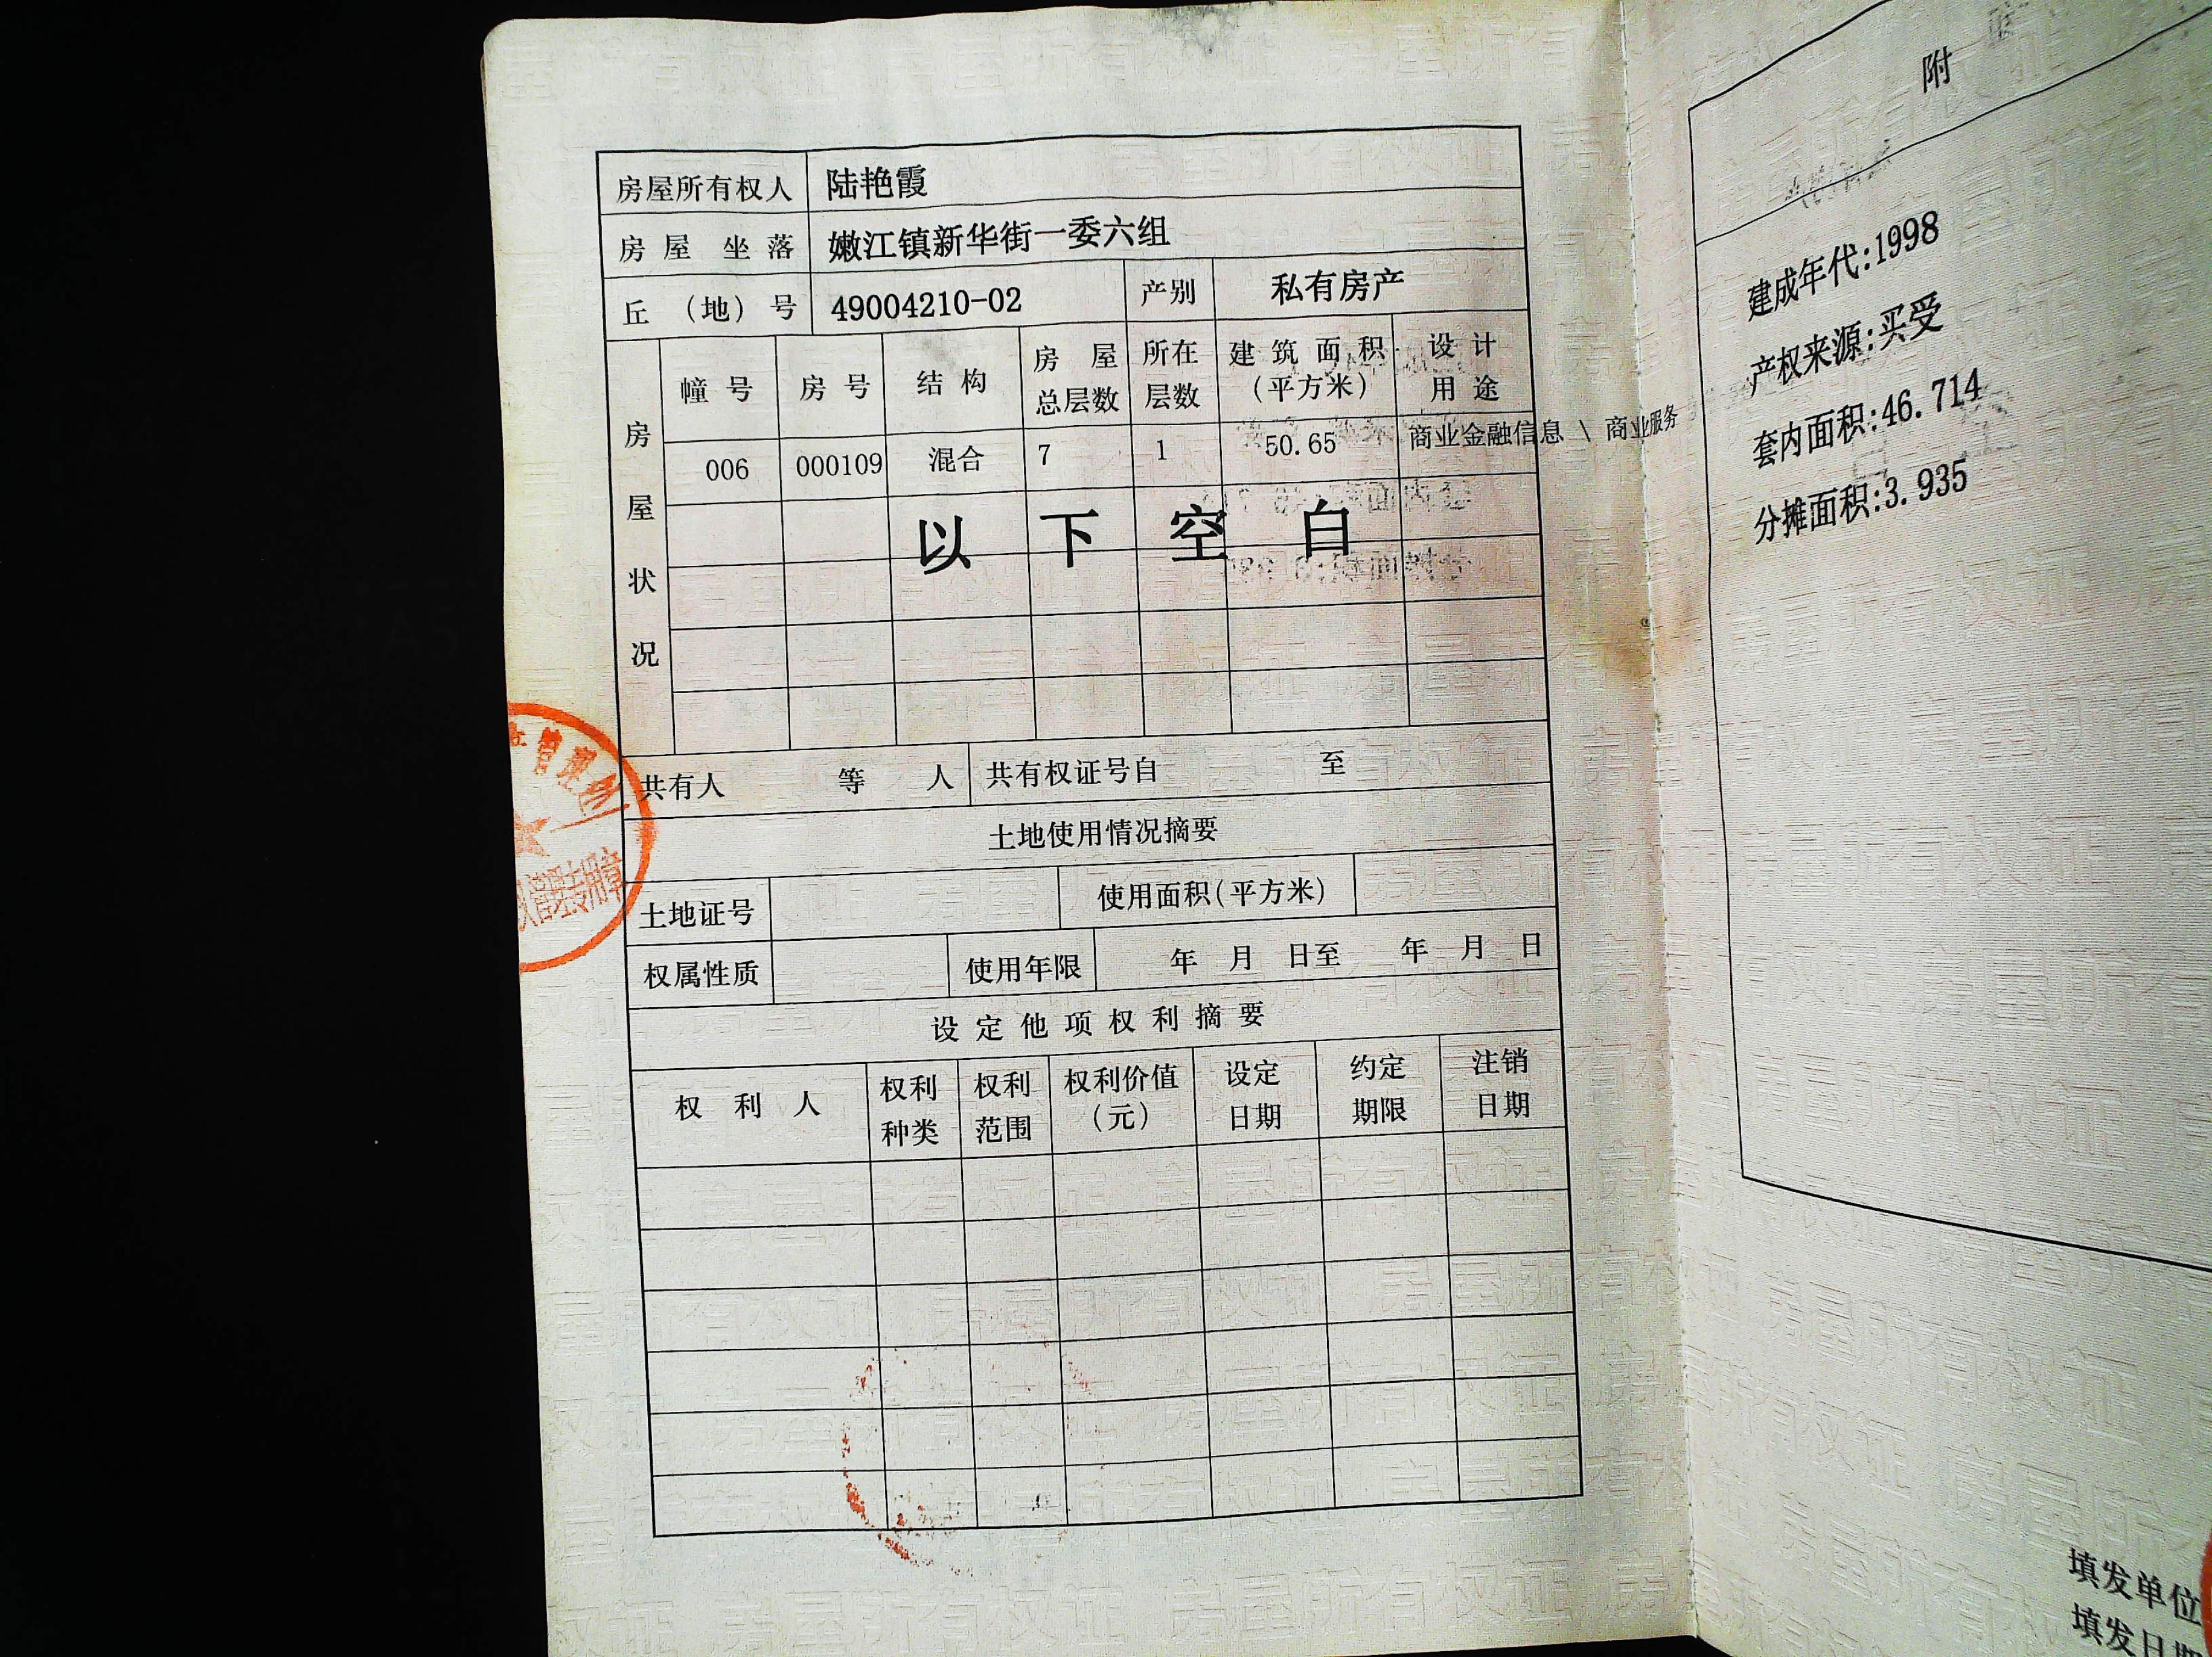 房屋所有权人 陆艳霞
房屋坐落 嫩江镇新华街一委六组
丘（地）号 49004210-02 产别 私有房产
房屋状况
幢号 房号 结构 房屋总层数 所在层数 建筑面积（平方米） 设计用途
006 000109 混合 7 1 50.65 商业金融信息 \ 商业服务
以下空白
共有人 等 人 共有权证号自 至
土地使用情况摘要
土地证号 使用面积(平方米)
权属性质 使用年限 年 月 日至 年 月 日
设定他项权利摘要
权利人 权利种类 权利范围 权利价值（元） 设定日期 约定期限 注销日期
管理专用章
附
建成年代:1998
产权来源:买受
套内面积:46.714
分摊面积:3.935
填发单位
填发日期